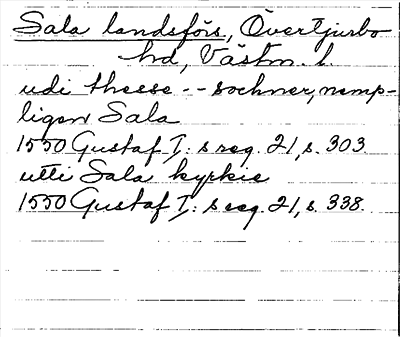 Sala landsförs, Övertjurbo
hd, Västm. l.
udi thesse -- sochner, nemp-
ligen Sala
1550 Gustaf I: s reg. 21, s. 303.
utti Sala kyrkie
1550 Gustaf I: s reg. 21, s. 338.